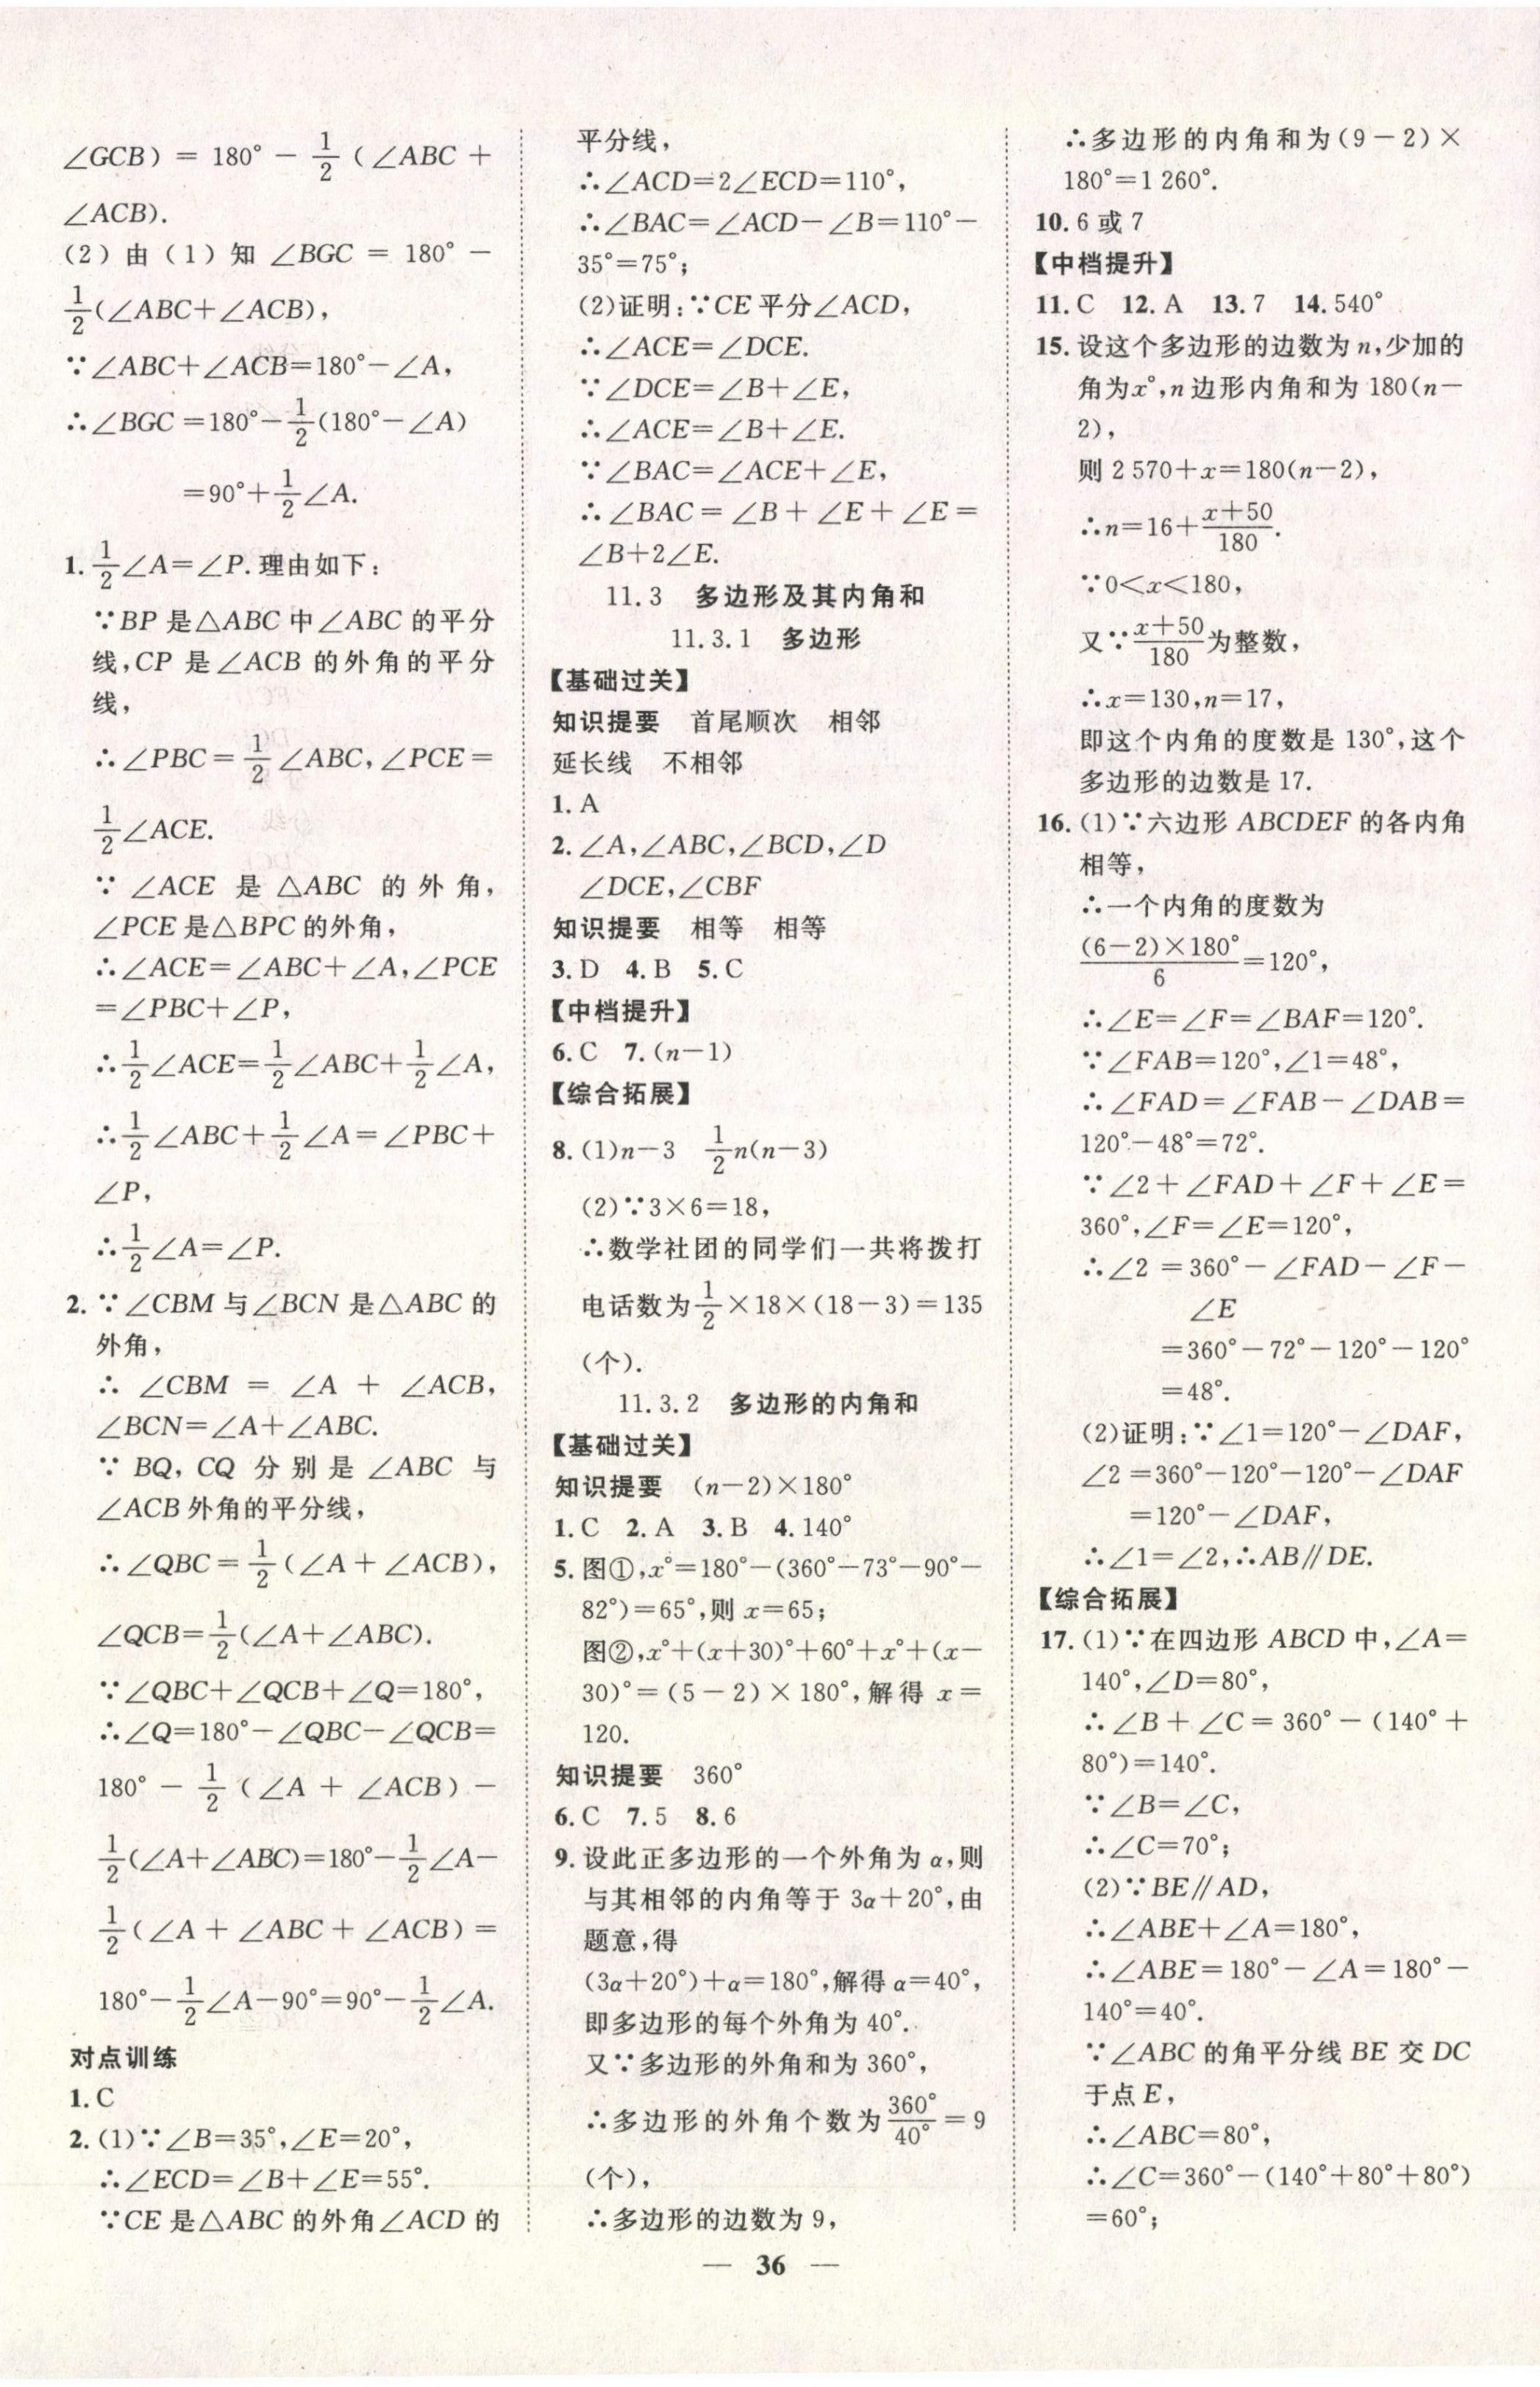 ∠GCB) = 180° − 1/2 (∠ABC +
∠ACB).
(2) 由 (1) 知 ∠BGC = 180° −
1/2(∠ABC+∠ACB),
∵∠ABC+∠ACB=180°−∠A,
∴∠BGC=180°−1/2(180°−∠A)
=90°+1/2∠A.
1. 1/2∠A=∠P.理由如下:
∵BP 是△ABC 中∠ABC 的平分
线,CP 是∠ACB 的外角的平分
线,
∴∠PBC=1/2∠ABC,∠PCE=
1/2∠ACE.
∵ ∠ACE 是 △ABC 的 外 角,
∠PCE 是△BPC 的外角,
∴∠ACE=∠ABC+∠A,∠PCE
=∠PBC+∠P,
∴1/2∠ACE=1/2∠ABC+1/2∠A,
∴1/2∠ABC+1/2∠A=∠PBC+
∠P,
∴1/2∠A=∠P.
2. ∵∠CBM 与∠BCN 是△ABC 的
外角,
∴ ∠CBM = ∠A + ∠ACB,
∠BCN=∠A+∠ABC.
∵ BQ, CQ 分 别 是 ∠ABC 与
∠ACB 外角的平分线,
∴∠QBC=1/2(∠A+∠ACB),
∠QCB=1/2(∠A+∠ABC).
∵∠QBC+∠QCB+∠Q=180°,
∴∠Q=180°−∠QBC−∠QCB=
180° − 1/2 (∠A + ∠ACB) −
1/2(∠A+∠ABC)=180°−1/2∠A−
1/2(∠A + ∠ABC + ∠ACB) =
180°−1/2∠A−90°=90°−1/2∠A.
对点训练
1. C
2. (1)∵∠B=35°,∠E=20°,
∴∠ECD=∠B+∠E=55°.
∵CE 是△ABC 的外角∠ACD 的
平分线,
∴∠ACD=2∠ECD=110°,
∴∠BAC=∠ACD−∠B=110°−
35°=75°;
(2)证明:∵CE 平分∠ACD,
∴∠ACE=∠DCE.
∵∠DCE=∠B+∠E,
∴∠ACE=∠B+∠E.
∵∠BAC=∠ACE+∠E,
∴∠BAC=∠B+∠E+∠E=
∠B+2∠E.
11.3 多边形及其内角和
11.3.1 多边形
【基础过关】
知识提要 首尾顺次 相邻
延长线 不相邻
1. A
2. ∠A,∠ABC,∠BCD,∠D
∠DCE,∠CBF
知识提要 相等 相等
3. D 4. B 5. C
【中档提升】
6. C 7. (n−1)
【综合拓展】
8. (1)n−3 1/2n(n−3)
(2)∵3×6=18,
∴数学社团的同学们一共将拨打
电话数为1/2×18×(18−3)=135
(个).
11.3.2 多边形的内角和
【基础过关】
知识提要 (n−2)×180°
1. C 2. A 3. B 4. 140°
5. 图①,x°=180°−(360°−73°−90°−
82°)=65°,则 x=65;
图②,x°+(x+30)°+60°+x°+(x−
30)°=(5−2)×180°,解得 x=
120.
知识提要 360°
6. C 7. 5 8. 6
9. 设此正多边形的一个外角为 α,则
与其相邻的内角等于 3α+20°,由
题意,得
(3α+20°)+α=180°,解得 α=40°,
即多边形的每个外角为 40°.
又∵多边形的外角和为 360°,
∴多边形的外角个数为360°/40°=9
(个),
∴多边形的边数为 9,
∴多边形的内角和为(9−2)×
180°=1 260°.
10. 6 或 7
【中档提升】
11. C 12. A 13. 7 14. 540°
15. 设这个多边形的边数为 n,少加的
角为x°,n 边形内角和为 180(n−
2),
则 2 570+x=180(n−2),
∴n=16+(x+50)/180.
∵0<x<180,
又∵(x+50)/180为整数,
∴x=130,n=17,
即这个内角的度数是 130°,这个
多边形的边数是 17.
16. (1)∵六边形 ABCDEF 的各内角
相等,
∴一个内角的度数为
(6−2)×180°/6=120°,
∴∠E=∠F=∠BAF=120°.
∵∠FAB=120°,∠1=48°,
∴∠FAD=∠FAB−∠DAB=
120°−48°=72°.
∵∠2+∠FAD+∠F+∠E=
360°,∠F=∠E=120°,
∴∠2=360°−∠FAD−∠F−
∠E
=360°−72°−120°−120°
=48°.
(2)证明:∵∠1=120°−∠DAF,
∠2=360°−120°−120°−∠DAF
=120°−∠DAF,
∴∠1=∠2,∴AB∥DE.
【综合拓展】
17. (1)∵在四边形 ABCD 中,∠A=
140°,∠D=80°,
∴∠B+∠C=360°−(140°+
80°)=140°.
∵∠B=∠C,
∴∠C=70°;
(2)∵BE∥AD,
∴∠ABE+∠A=180°,
∴∠ABE=180°−∠A=180°−
140°=40°.
∵∠ABC 的角平分线 BE 交 DC
于点 E,
∴∠ABC=80°,
∴∠C=360°−(140°+80°+80°)
=60°;
— 36 —